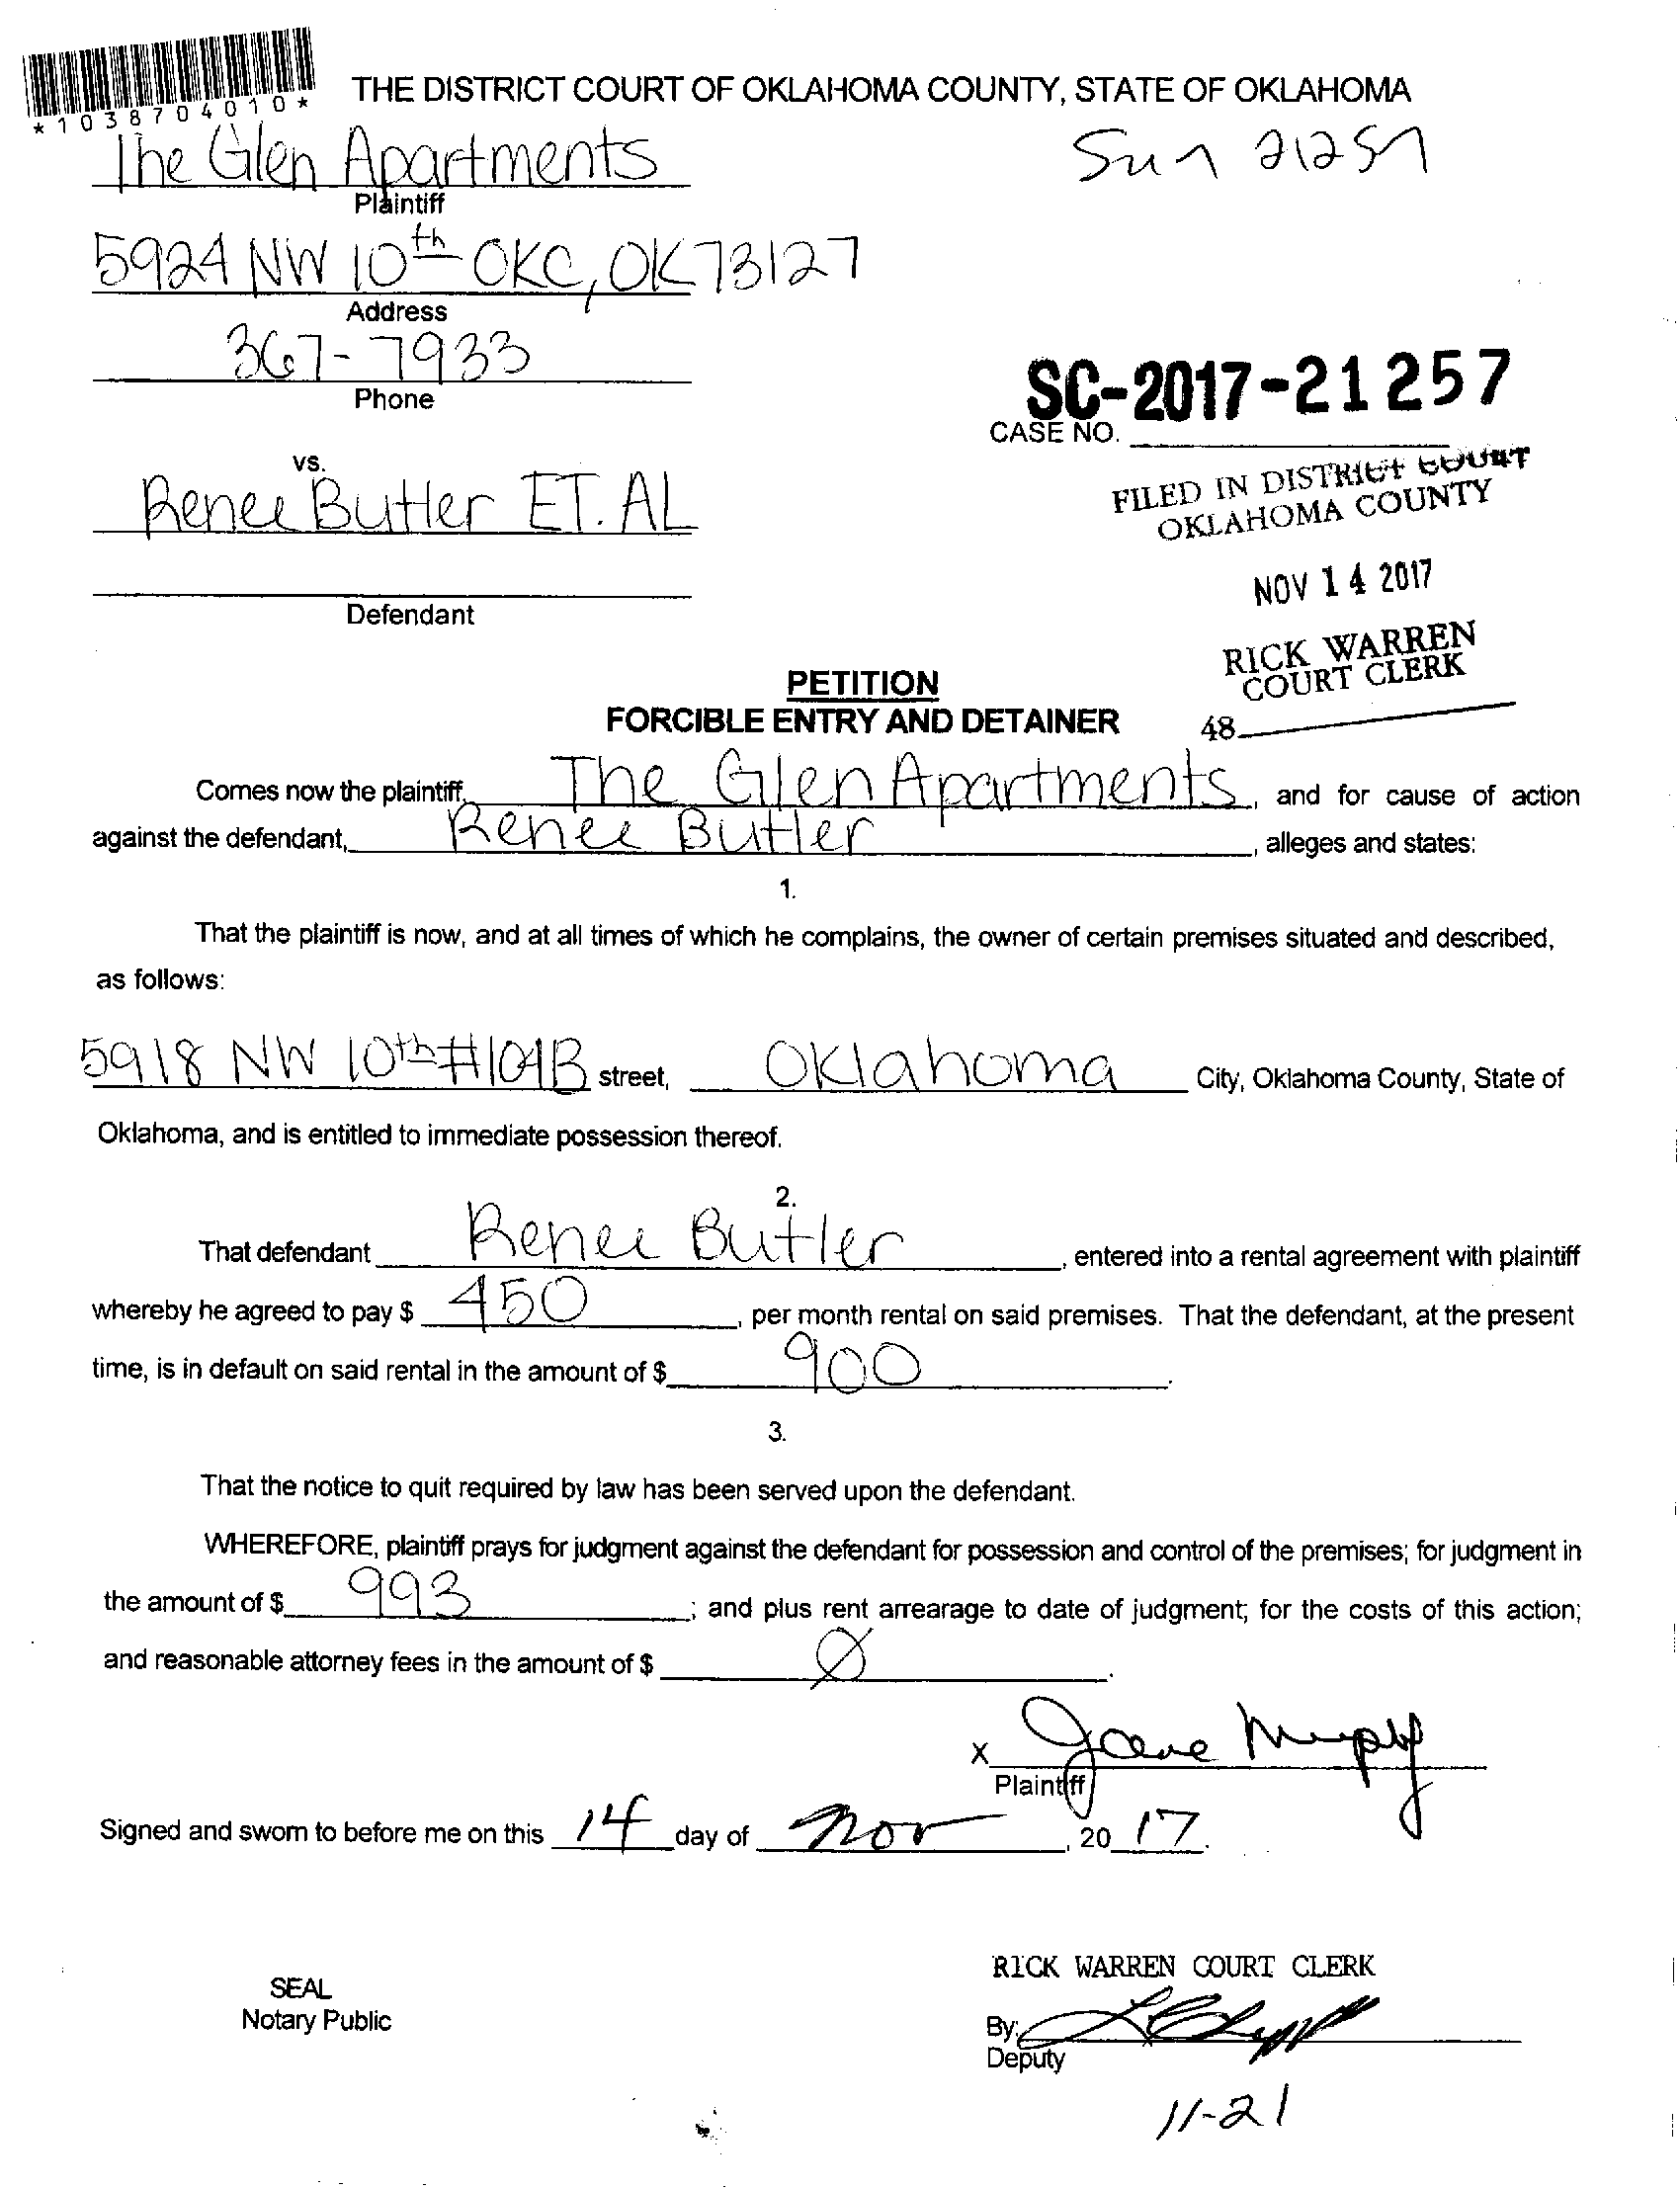 *1038704010*
THE DISTRICT COURT OF OKLAHOMA COUNTY, STATE OF OKLAHOMA
The Glen Apartments
Plaintiff
5924 NW 10th OKC, OK 73127
Address
367-7933
Phone
SC-2017-21257
CASE NO.
vs.
Renee Butler ET. AL
Defendant
FILED IN DISTRICT COURT
OKLAHOMA COUNTY
NOV 14 2017
RICK WARREN
COURT CLERK
48
PETITION
FORCIBLE ENTRY AND DETAINER
Comes now the plaintiff, The Glen Apartments, and for cause of action
against the defendant, Renee Butler, alleges and states:
1.
That the plaintiff is now, and at all times of which he complains, the owner of certain premises situated and described,
as follows:
5918 NW 10th #104B street, Oklahoma City, Oklahoma County, State of
Oklahoma, and is entitled to immediate possession thereof.
2.
That defendant Renee Butler, entered into a rental agreement with plaintiff
whereby he agreed to pay $ 450, per month rental on said premises. That the defendant, at the present
time, is in default on said rental in the amount of $ 900.
3.
That the notice to quit required by law has been served upon the defendant.
WHEREFORE, plaintiff prays for judgment against the defendant for possession and control of the premises; for judgment in
the amount of $ 993; and plus rent arrearage to date of judgment; for the costs of this action;
and reasonable attorney fees in the amount of $ Ø.
x Jane Murphy
Plaintiff
Signed and sworn to before me on this 14 day of Nov, 20 17.
SEAL
Notary Public
RICK WARREN COURT CLERK
By:
Deputy
11-21